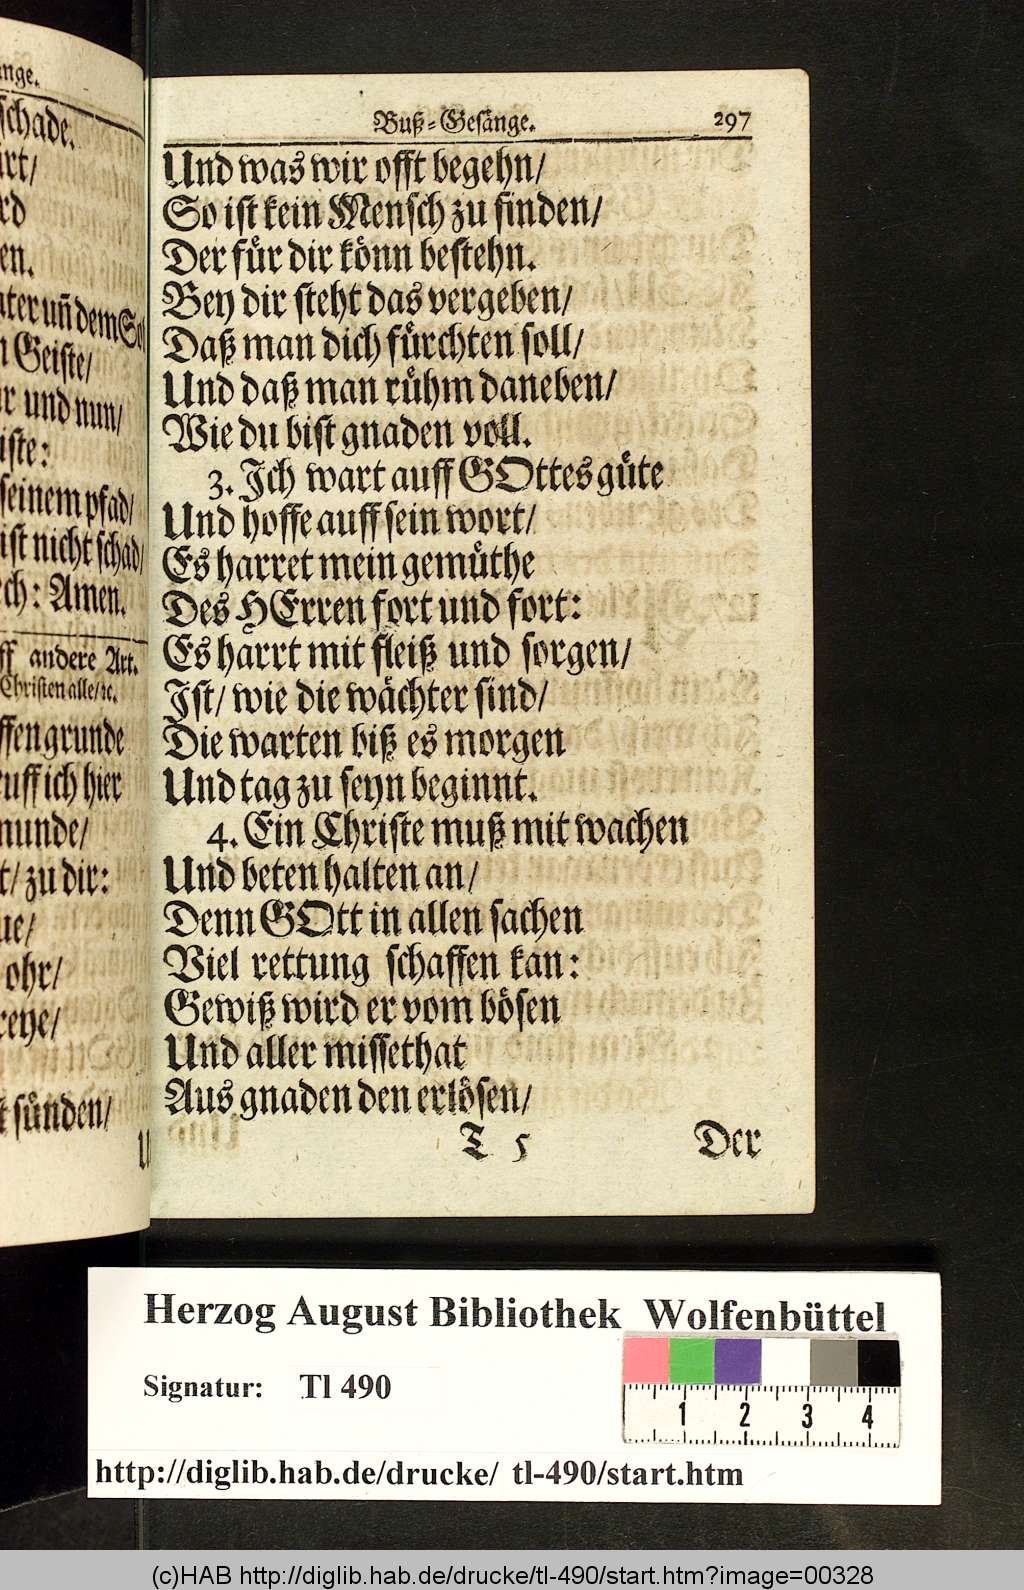 schade.
ater uñ dem So
Geiste/
und nun/
seinem pfad/
ist nicht schad/
Amen.
andere Art.
Christen alle/ ꝛc.
grunde
ruff ich hier
munde/
zu dir:
ohr/
sünden/
Buß-Gesänge. 297
Und was wir offt begehn/
So ist kein Mensch zu finden/
Der für dir könn bestehn.
Bey dir steht das vergeben/
Daß man dich fürchten soll/
Und daß man rühm daneben/
Wie du bist gnaden voll.
3. Ich wart auff GOttes güte
Und hoffe auff sein wort/
Es harret mein gemüthe
Des HErren fort und fort:
Es harrt mit fleiß und sorgen/
Ist/ wie die wächter sind/
Die warten biß es morgen
Und tag zu seyn beginnt.
4. Ein Christe muß mit wachen
Und beten halten an/
Denn GOtt in allen sachen
Viel rettung schaffen kan:
Gewiß wird er vom bösen
Und aller missethat
Aus gnaden den erlösen/
T 5 Der
Herzog August Bibliothek Wolfenbüttel
Signatur: Tl 490
1 2 3 4
http://diglib.hab.de/drucke/ tl-490/start.htm
(c)HAB http://diglib.hab.de/drucke/tl-490/start.htm?image=00328